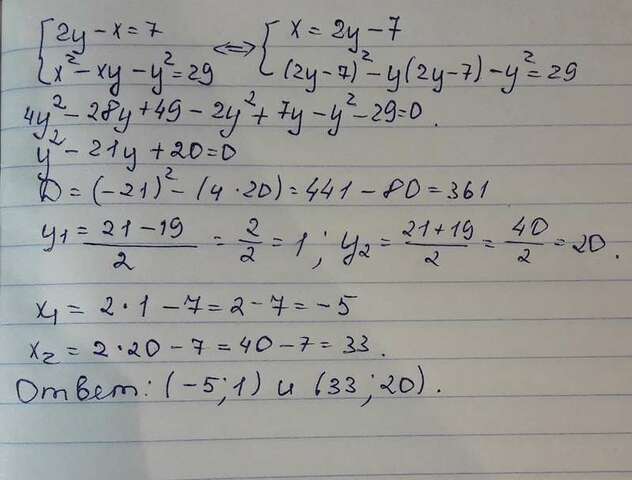 {2y - x = 7 ⇔ {x = 2y - 7
{x² - xy - y² = 29 {(2y-7)² - y(2y-7) - y² = 29
4y² - 28y + 49 - 2y² + 7y - y² - 29 = 0.
y² - 21y + 20 = 0
D = (-21)² - (4·20) = 441 - 80 = 361
y₁ = (21-19)/2 = 2/2 = 1; y₂ = (21+19)/2 = 40/2 = 20.
x₁ = 2·1 - 7 = 2 - 7 = -5
x₂ = 2·20 - 7 = 40 - 7 = 33.
Ответ: (-5; 1) и (33; 20).